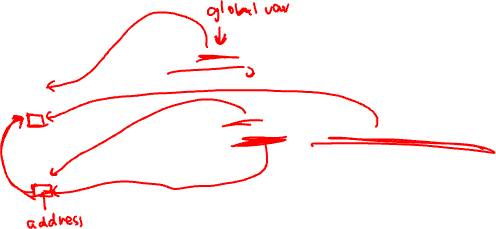 global var
address